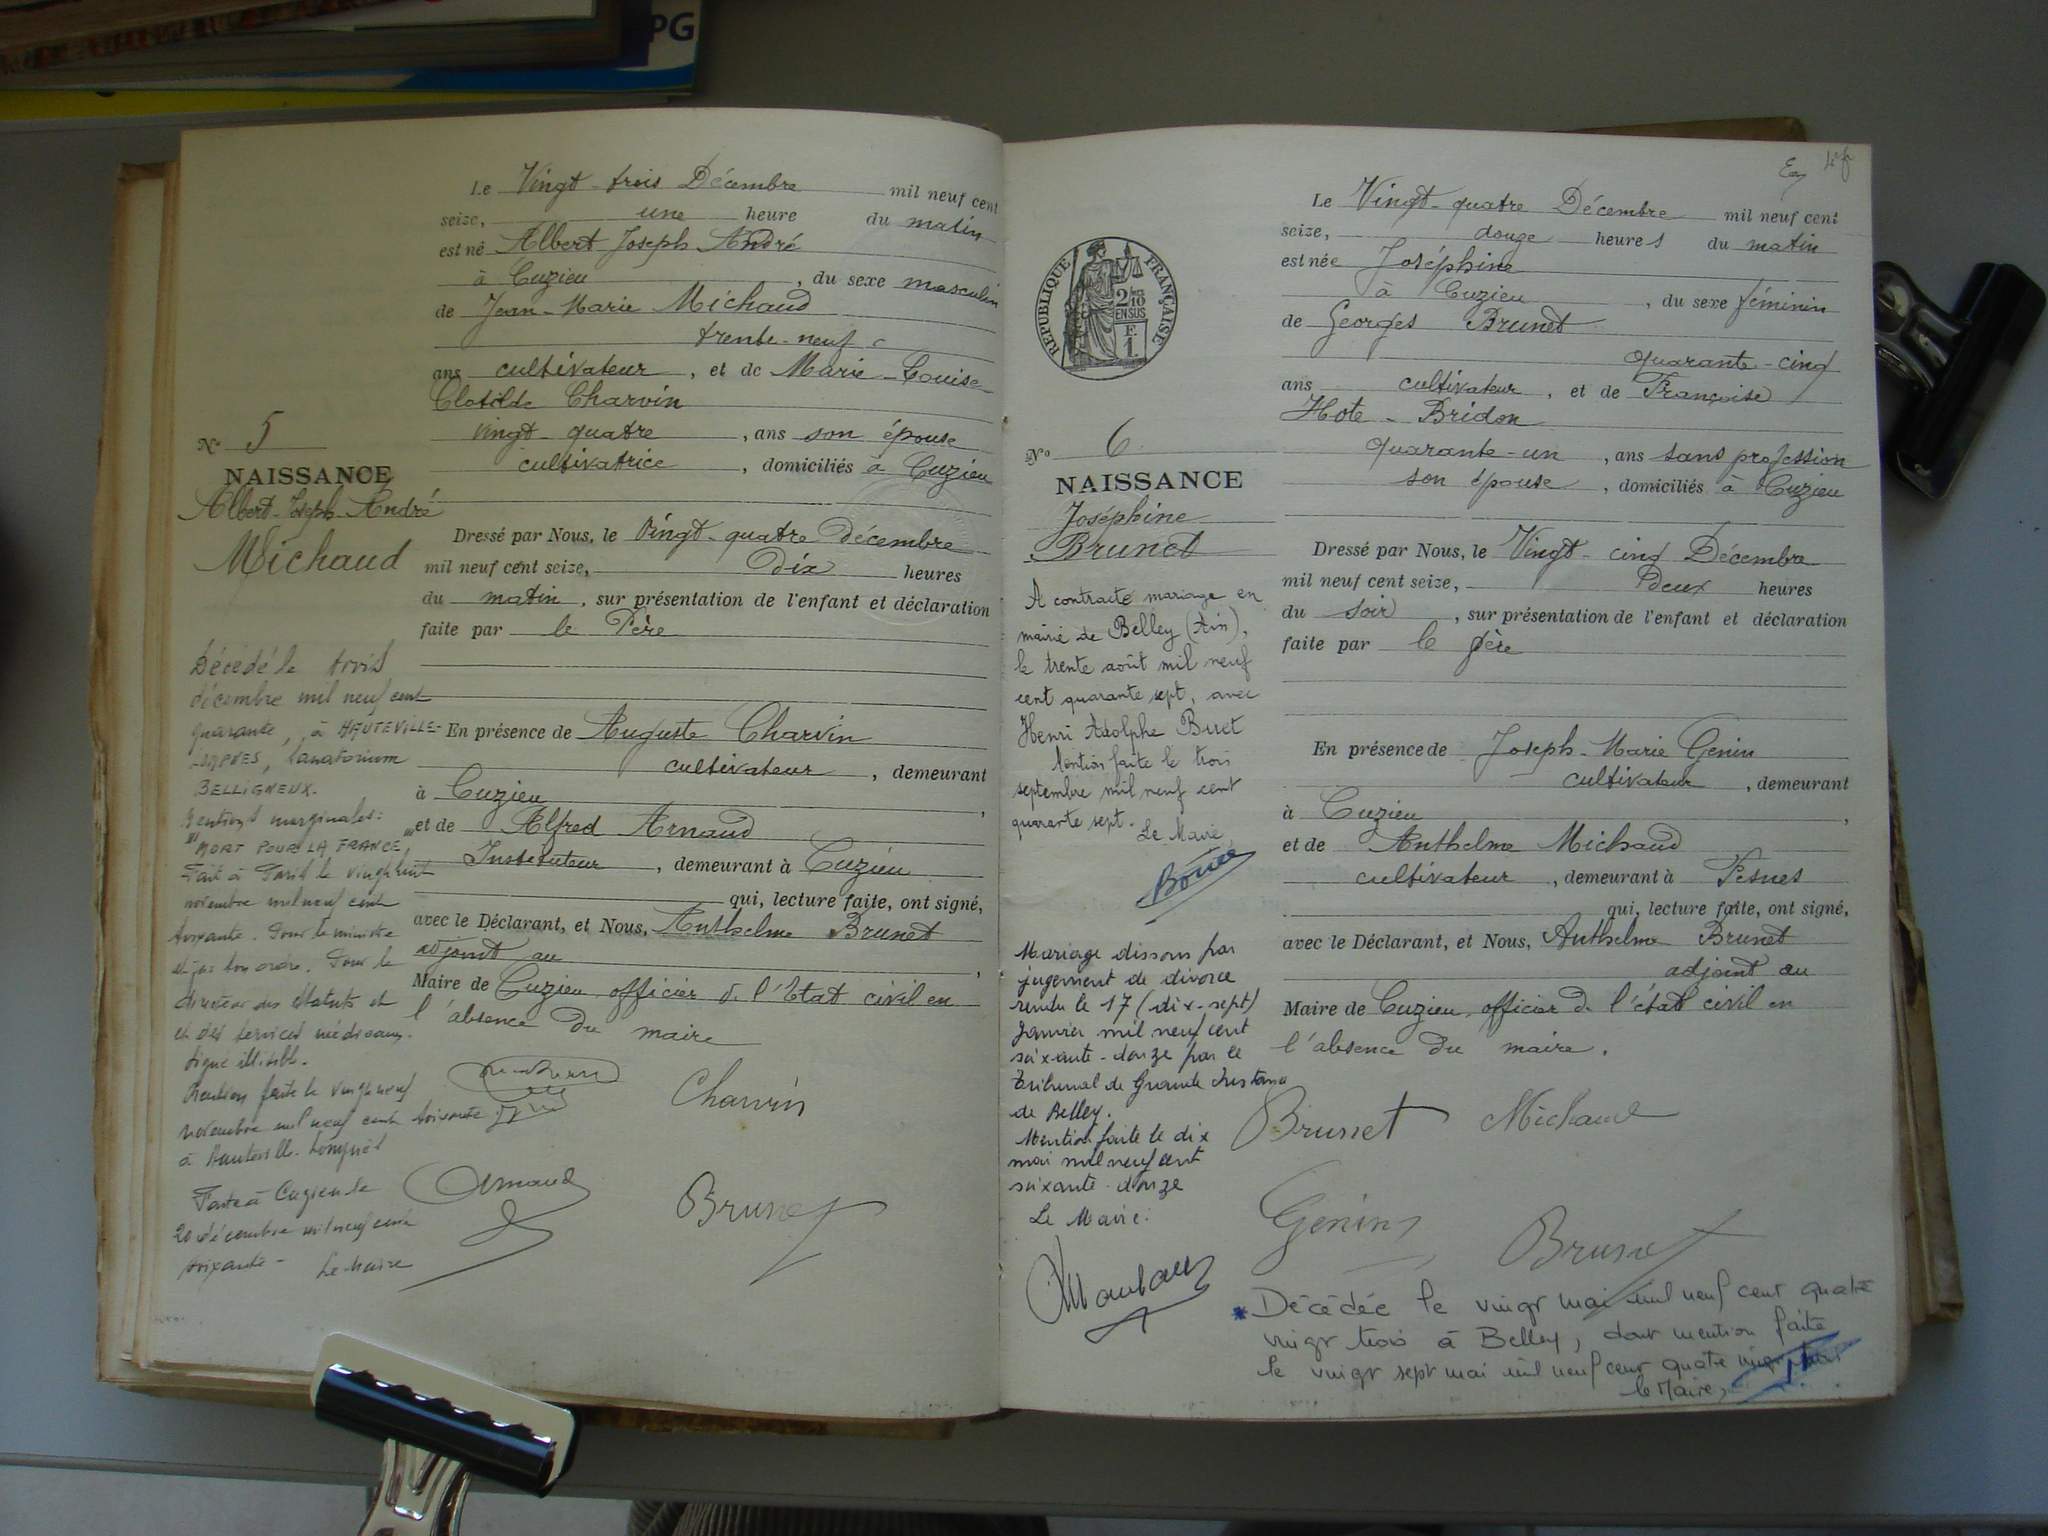 PG
Le Vingt-trois Décembre mil neuf cent
seize, une heure du matin
est né Albert Joseph André
à Cuzieu, du sexe masculin
de Jean-Marie Michaud
trente-neuf
ans cultivateur, et de Marie-Louise
Clotilde Charvin
vingt-quatre, ans son épouse
cultivatrice, domiciliés à Cuzieu
N° 5
NAISSANCE
Albert-Joseph-André
Michaud
Dressé par Nous, le Vingt-quatre décembre
mil neuf cent seize, dix heures
du matin, sur présentation de l'enfant et déclaration
faite par le Père
En présence de Auguste Charvin
cultivateur, demeurant
à Cuzieu,
et de Alfred Arnaud
Instituteur, demeurant à Cuzieu
qui, lecture faite, ont signé,
avec le Déclarant, et Nous, Anthelme Brunet
adjoint au,
Maire de Cuzieu officier de l'Etat civil en
l'absence du maire
Charvin
Arnaud
Brunet
Décédé le trois
décembre mil neuf cent
quarante, à HAUTEVILLE-
LOMPNES, Sanatorium
BELLIGNEUX.
Mentions marginales:
"MORT POUR LA FRANCE"
Fait à Paris le vingt huit
novembre mil neuf cent
soixante. Pour le ministre
et par son ordre. Pour le
directeur des Statuts et
et des services médicaux.
Signé illisible.
Mention faite le vingt neuf
novembre mil neuf cent soixante
à Hauteville-Lompnès
Faite à Cuzieu le
20 décembre mil neuf cent
soixante-
Le Maire
REPUBLIQUE FRANÇAISE
2/10
EN SUS
F.
1.
Le Vingt-quatre Décembre mil neuf cent
seize, douze heures du matin
est née Joséphine
à Cuzieu, du sexe féminin
de Georges Brunet
quarante-cinq
ans cultivateur, et de Françoise
Hote-Bridon
quarante-un, ans sans profession
son épouse, domiciliés à Cuzieu
N° 6
NAISSANCE
Joséphine
Brunet
Dressé par Nous, le Vingt-cinq Décembre
mil neuf cent seize, deux heures
du soir, sur présentation de l'enfant et déclaration
faite par le père
En présence de Joseph-Marie Genin
cultivateur, demeurant
à Cuzieu,
et de Anthelme Michaud
cultivateur, demeurant à Pesnes
qui, lecture faite, ont signé,
avec le Déclarant, et Nous, Anthelme Brunet
adjoint au
Maire de Cuzieu officier de l'état civil en
l'absence du maire.
Brunet Michaud
Genin Brunet
A contracté mariage en
mairie de Belley (Ain),
le trente août mil neuf
cent quarante sept, avec
Henri Adolphe Buet
Mention faite le trois
septembre mil neuf cent
quarante sept.
Le Maire,
Mariage dissous par
jugement de divorce
rendu le 17 (dix-sept)
Janvier mil neuf cent
soixante-douze par le
Tribunal de Grande Instance
de Belley.
Mention faite le dix
mai mil neuf cent
soixante-douze
Le Maire:
* Décédée le vingt mai mil neuf cent quatre
vingt trois à Belley, dont mention faite
le vingt sept mai mil neuf cent quatre vingt trois
le Maire,